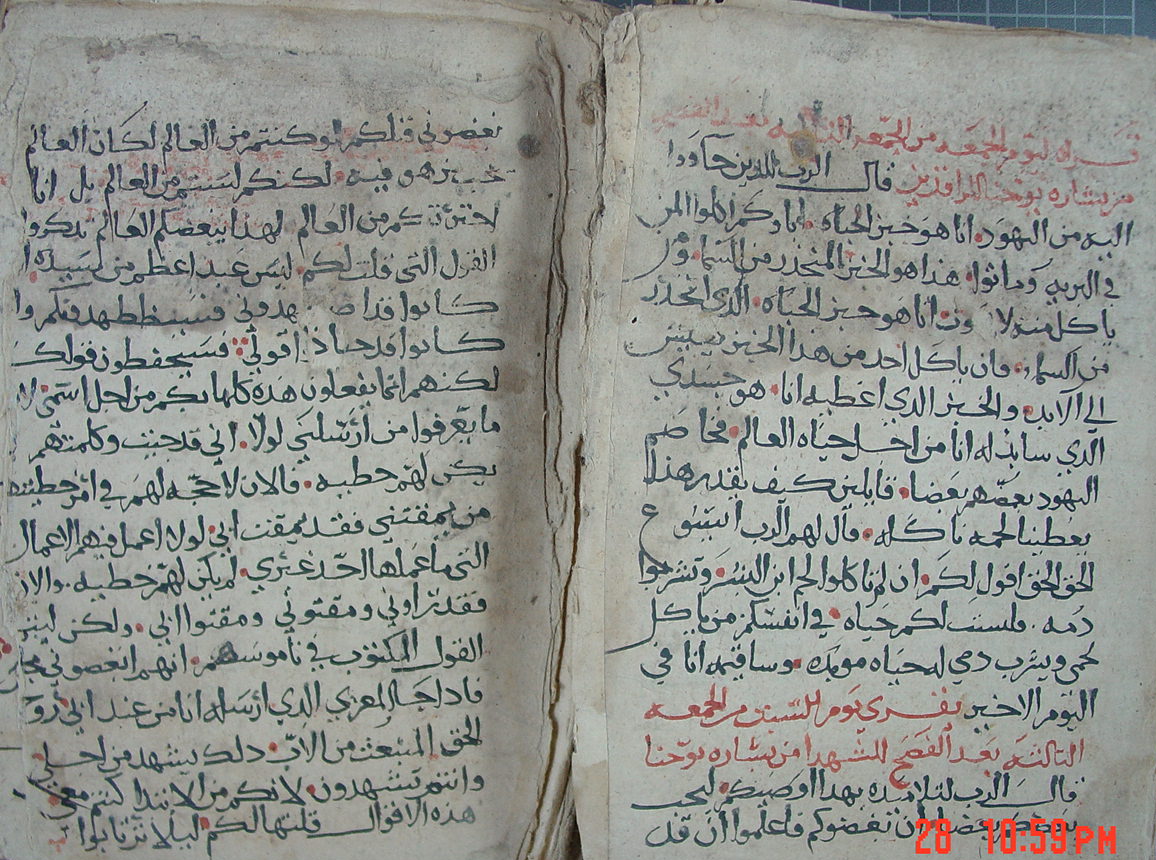 قراه ليوم الجمعه من الجمعه الثالثه بعد الفصح
من بشاره يوحنا قال الرب للدين جاووا
اليه من اليهود. انا هو خبز الحياه. اباوكم اكلوا المن
في البريه وماتوا. هدا هو الخبز المنحدر من السما. ومن
ياكل منه لا يموت انا هو خبز الحياه. الدي انحدر
من السماء. فان ياكل احد من هدا الخبز يعيش
الي الابد. والخبز الدي اعطيه انا. هو جسدي
الدي سابدله انا من اجل حياه العالم. فخاصم
اليهود بعضهم بعضا. قايلين كيف يقدر هدا
يعطينا لحمه ناكله. قال لهم الرب ايسوع
الحق الحق اقول لكم. ان لم تاكلوا لحم ابن البشر. وتشربوا
دمه. فليست لكم حياه في انفسكم. من ياكل
لحمي ويشرب دمي له حياه موبده. وساقيمه انا في
اليوم الاخير يقري يوم السبت من الجمعه
الثالثه بعد الفصح للشهدا من بشاره يوحنا
قال الرب لتلاميده بهدا اوصيكم. ليحب
بعضكم بعضا ان تغضوكم فاعلموا ان قبل
قبلكم لو كنتم من العالم لكان العالم
يحب هو فيه. لكنكم لستم من العالم بل انا
اخترتكم من العالم لهدا يبغضكم العالم تدكروا
القول التي قلت لكم. ليس عبد اعظم من سيده. ان
كانوا قد اضطهدوني فسيضطهدونكم وان
كانوا قد حفظوا قولي. فسيحفظون قولكم
لكنهم انما يفعلون هده كلها بكم من اجل اسمي. لانهم
ما يعرفوا من ارسلني لولا. اني قد جيت وكلمتهم
يكن لهم خطيه. فالان لا حجه لهم في امر خطيتهم
من يمقتني فقد يمقت ابي. لولا اعمل فيهم الاعمال
التي ما عملها احد غيري. لم يكن لهم خطيه. والان
فقد راوني ومقتوني ومقتوا ابي. ولكن ليتم
القول المكتوب في ناموسهم. انهم ابغضوني مجانا
فادا جا المعزي الدي ارسله انا من عند ابي. روح
الحق المنبعث من الاب. دلك يشهد من اجلي
وانتم تشهدون. لانكم من الابتدا كنتم معي.
هده الاقوال قلتها لكم ليلا ترتابوا
28 10:59 PM